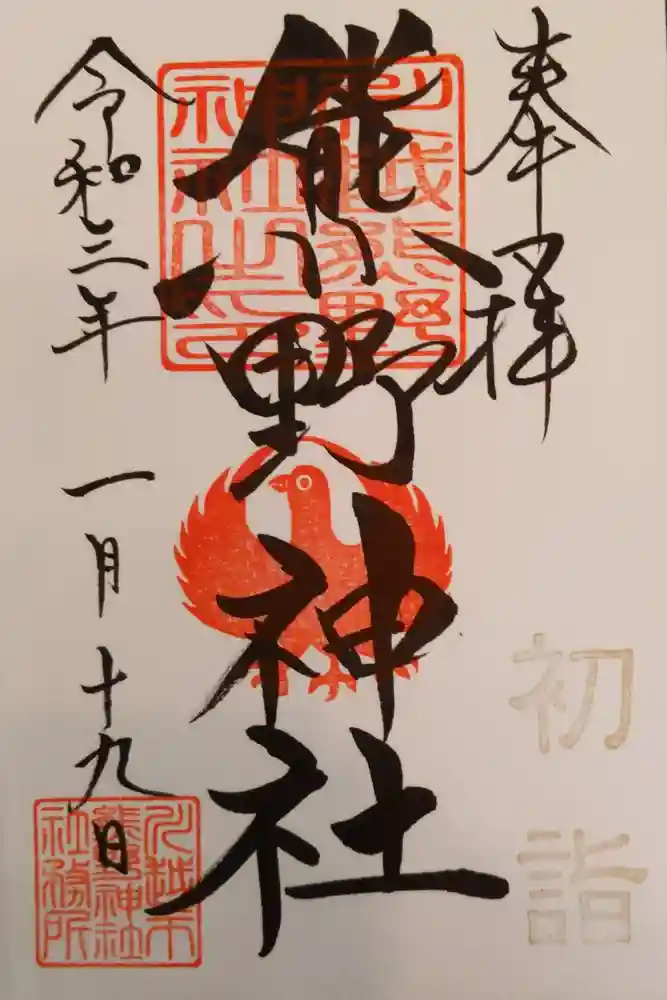 奉拝
初詣
熊野神社
令和二年一月十九日
川越市
熊野神社
社務所